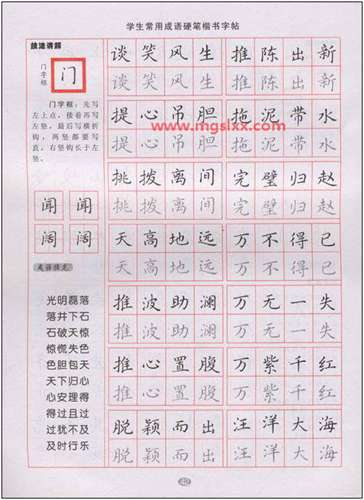 学生常用成语硬笔楷书字帖
技法讲解
门字框
门
门字框：先写
左上点，接着再写
左竖，最后写横折
钩，两竖都要写
直，右竖钩长于左
竖。
闻 闻
阔 阔
成语填充
光明磊落
落井下石
石破天惊
惊慌失色
色胆包天
天下归心
心安理得
得过且过
过犹不及
及时行乐
谈笑风生 推陈出新
谈笑风生 推陈出新
提心吊胆 拖泥带水
www.mgsixx.com
提心吊胆 拖泥带水
挑拨离间 完璧归赵
挑拨离间 完璧归赵
天高地远 万不得已
天高地远 万不得已
推波助澜 万无一失
推波助澜 万无一失
推心置腹 万紫千红
推心置腹 万紫千红
脱颖而出 汪洋大海
脱颖而出 汪洋大海